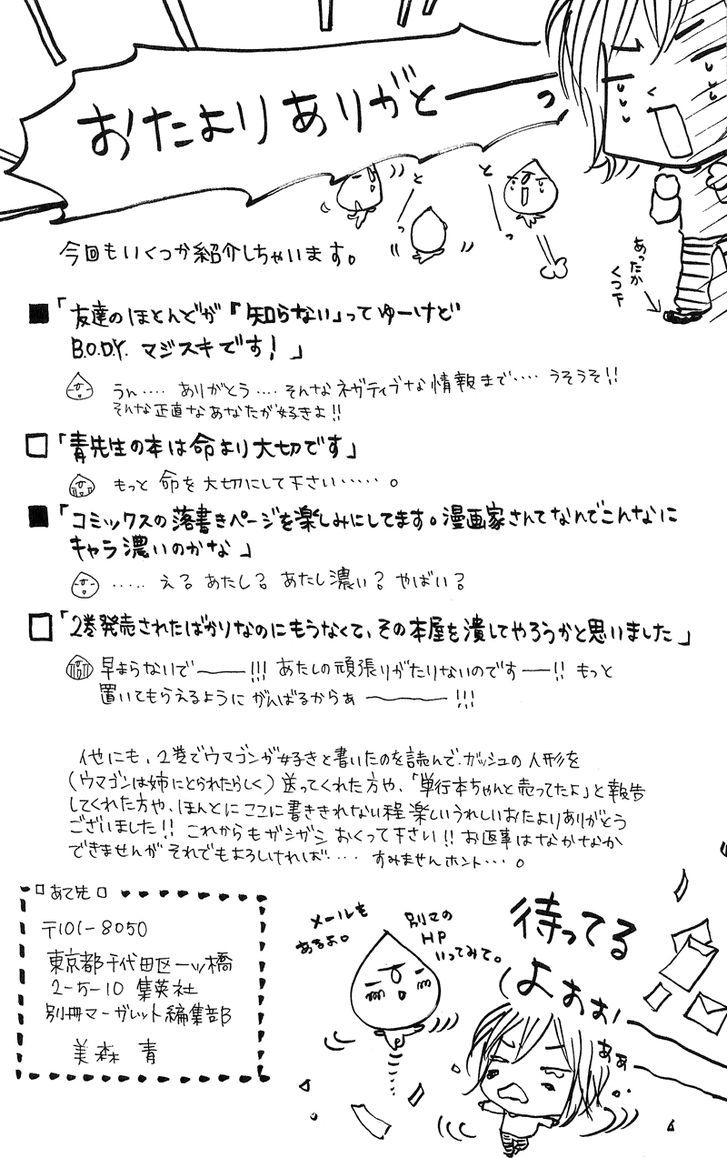 おたよりありがと――っ
とーっ
とーっ
あったか
くつ下
今回もいくつか紹介しちゃいます。
■「友達のほとんどが『知らない』ってゆーけど
B.O.D.Y. マジスキです!」
うん‥‥ ありがとう‥‥そんなネガティブな情報まで‥‥ うそうそ!!
そんな正直なあなたが好きよ!!
□「青先生の本は命より大切です」
もっと 命を大切にして下さい‥‥‥。
■「コミックスの落書きページを楽しみにしてます。漫画家さんてなんでこんなに
キャラ濃いのかな」
‥‥‥え? あたし? あたし濃い? やばい?
□「2巻発売されたばかりなのにもうなくて、その本屋を潰してやろうかと思いました」
早まらないで――!!! あたしの頑張りがたりないのです――!! もっと
置いてもらえるように がんばるからぁ ――!!!
他にも、2巻でウマゴンが好きと書いたのを読んで、ガッシュの人形を
(ウマゴンは姉にとられたらしく)送ってくれた方や、「単行本ちゃんと売ってたよ」と報告
してくれた方や、ほんとにここに書ききれない程 楽しいうれしいおたよりありがとう
ございました!! これからもガシガシ おくって下さい!! お返事はなかなか
できませんが それでもよろしければ‥‥ すみませんホント‥‥。
□あて先□
〒101-8050
東京都千代田区一ッ橋
2-5-10 集英社
別冊マーガレット編集部
美森 青
メールも
あるよ。
別マの
HP
いってみて。
待ってる
よぉぉぉ
ぁぁ